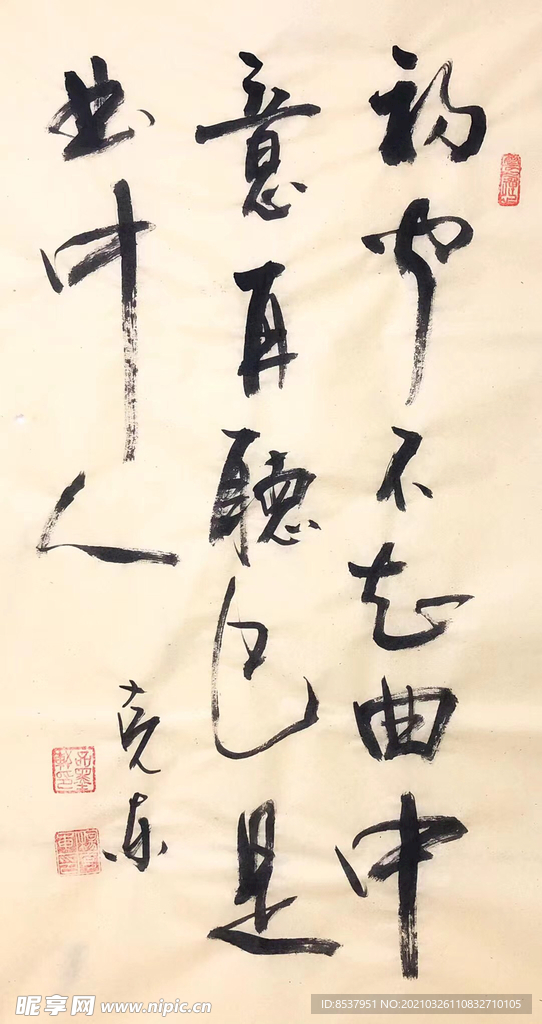 初闻不知曲中
意再聽已是
曲中人
克东
昵享网 www.nipic.cn
ID:8537951 NO:20210326110832710105